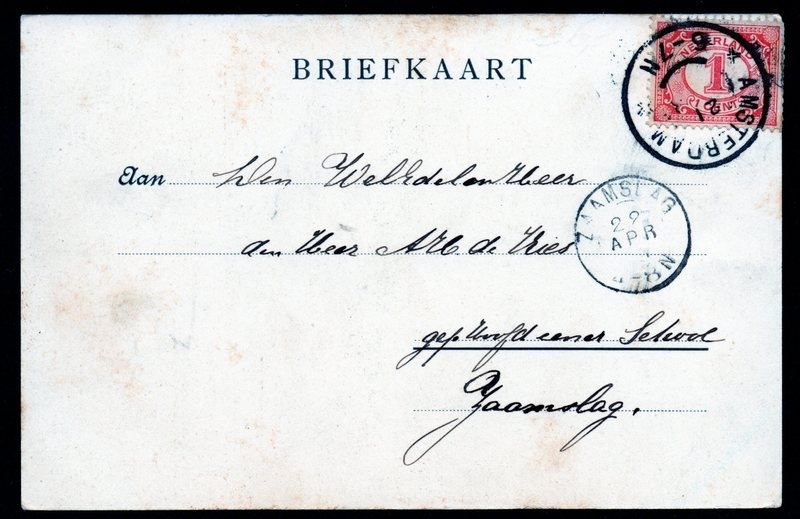 BRIEFKAART
NEDERLAND
1
CENT
AMSTERDAM
6-7N
Aan Den WelEdelen Heer
den Heer A.H. de Vries
gep Hoofd eener School
Zaamslag.
ZAAMSLAG
22
APR
-8N